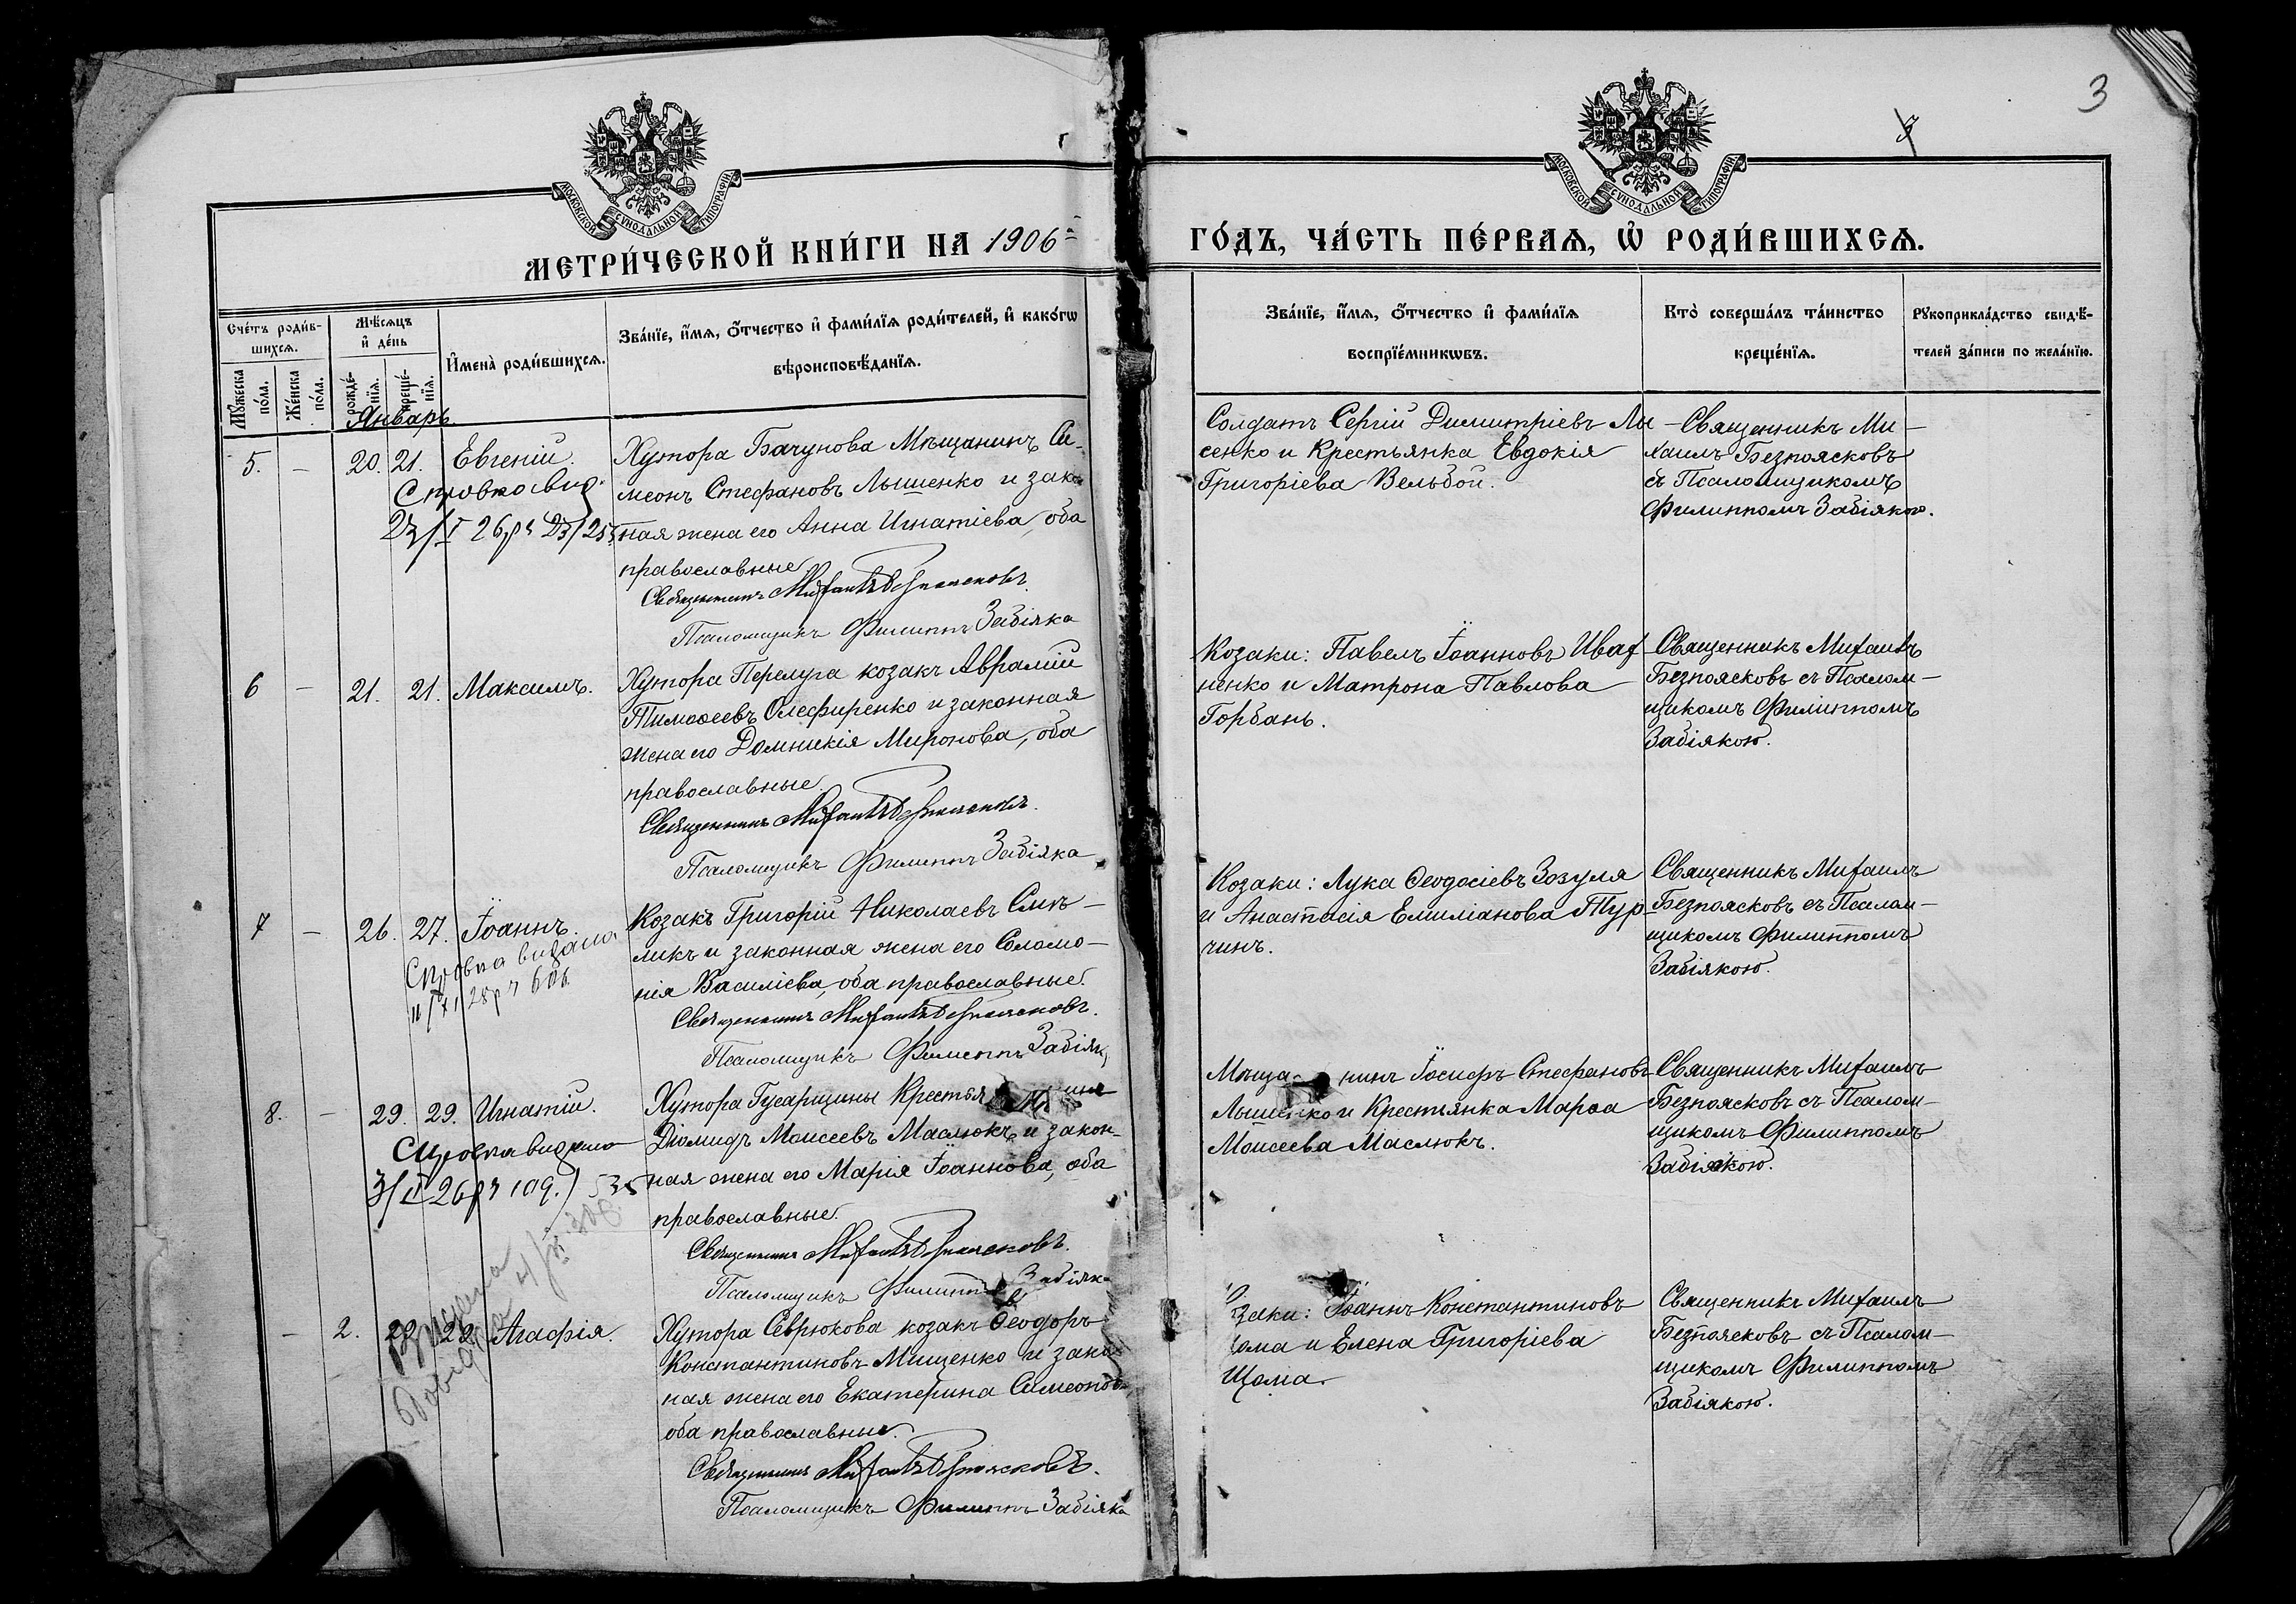 3
3
МОСКОВСКОЙ СѴНОДАЛЬНОЙ ТИПОГРАФІИ
МОСКОВСКОЙ СѴНОДАЛЬНОЙ ТИПОГРАФІИ
МЕТРИ́ЧЕСКОЙ КНИ́ГИ НА 1906
ГО́ДЪ, ЧА́СТЬ ПЕ́РВАѦ, Ѡ҆ РОДИ́ВШИХСѦ.
Сче́тъ роди́в-
шихсѧ.
Мꙋ́жеска по́ла.
Же́нска по́ла.
Мѣ́сѧцъ
и҆ де́нь
рожде́-
нїѧ.
креще́-
нїѧ.
И҆мена̀ роди́вшихсѧ.
Зва́нїе, и҆́мѧ, ѻ҆́тчество и҆ фами́лїѧ роди́телей, и҆ како́гѡ
вѣроисповѣ́данїѧ.
Зва́нїе, и҆́мѧ, ѻ҆́тчество и҆ фами́лїѧ
воспрїе́мникѡвъ.
Кто̀ соверша́лъ та́инство
креще́нїѧ.
Рꙋкоприкла́дство свидѣ́-
телей за́писи по жела́нїю.
Январь.
5. – 20. 21. Евгеній.
Справка вид.
23/I 26 р ч 23/253
Хутора Бачунова Мѣщанинъ Си-
меонъ Стефановъ Лышенко и закон
ная жена его Анна Игнатіева, оба
православные
Священникъ Михаилъ Безпоясковъ.
Псаломщикъ Филиппъ Забіяка
Солдатъ Сергій Димитріевъ Лы
сенко и Крестьянка Евдокія
Григоріева Вельбой.
Священникъ Ми-
хаилъ Безпоясковъ
съ Псаломщикомъ
Филиппомъ Забіякою.
6 – 21. 21. Максимъ.
Хутора Перелуга козакъ Аврамій
Тимоѳеевъ Олефиренко и законная
жена его Домникія Миронова, оба
православные.
Священникъ Михаилъ Безпоясковъ.
Псаломщикъ Филиппъ Забіяка
Козаки: Павелъ Іоанновъ Ивах
ненко и Матрона Павлова
Горбань.
Священникъ Михаилъ
Безпоясковъ съ Псалом-
щикомъ Филиппомъ
Забіякою.
7 – 26. 27. Іоаннъ.
Справка видана
11/VI 28 р ч 606
Козакъ Григорій Николаевъ Смѣ-
ликъ и законная жена его Соломо-
нія Василіева, оба православные.
Священникъ Михаилъ Безпоясковъ.
Псаломщикъ Филиппъ Забіяк
Козаки: Лука Ѳеодосіевъ Зозуля
и Анастасія Емиліанова Тур-
чинъ.
Священникъ Михаилъ
Безпоясковъ съ Псалом-
щикомъ Филиппомъ
Забіякою.
8. – 29. 29. Игнатій.
Справка видана
3/II 26 р ч 109.) 535
Хутора Гусарщины Крестья нинъ
Діомидъ Моисеевъ Маслюкъ и закон-
ная жена его Марія Іоаннова, оба
православные.
Священникъ Михаилъ Безпоясковъ.
Псаломщикъ Филиппъ Забіяка
Мѣща нинъ Іосифъ Стефановъ
Лышенко и Крестьянка Марѳа
Моисеева Маслюкъ.
Священникъ Михаилъ
Безпоясковъ съ Псалом-
щикомъ Филиппомъ
Забіякою.
– 2. 29. 29. Агафія.
Хутора Севрюкова козакъ Ѳеодоръ
Константиновъ Мищенко и закон
ная жена его Екатерина Симеонов
оба православные.
Священникъ Михаилъ Безпоясковъ.
Псаломщикъ Филиппъ Забіяка
заки: Іоаннъ Константиновъ
ома и Елена Григоріева
Щома.
Священникъ Михаилъ
Безпоясковъ съ Псалом-
щикомъ Филиппомъ
Забіякою.